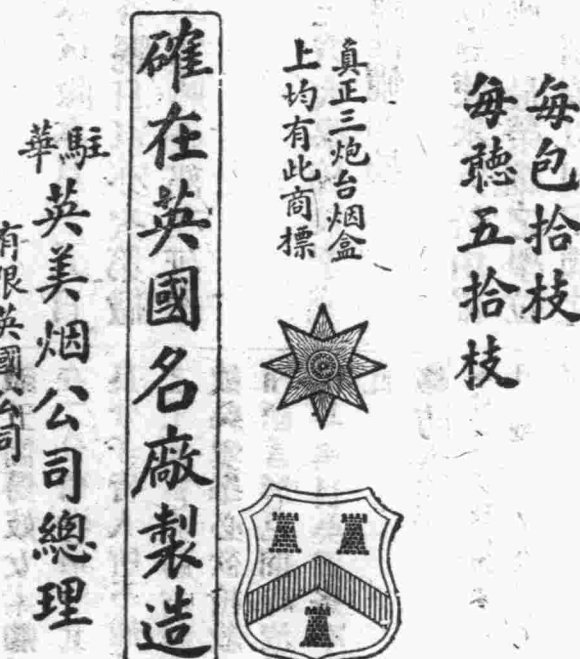 每包拾枝
每聽五拾枝
真正三炮台烟盒
上均有此商標
確在英國名廠製造
駐華英美烟公司總理
有限英國公司